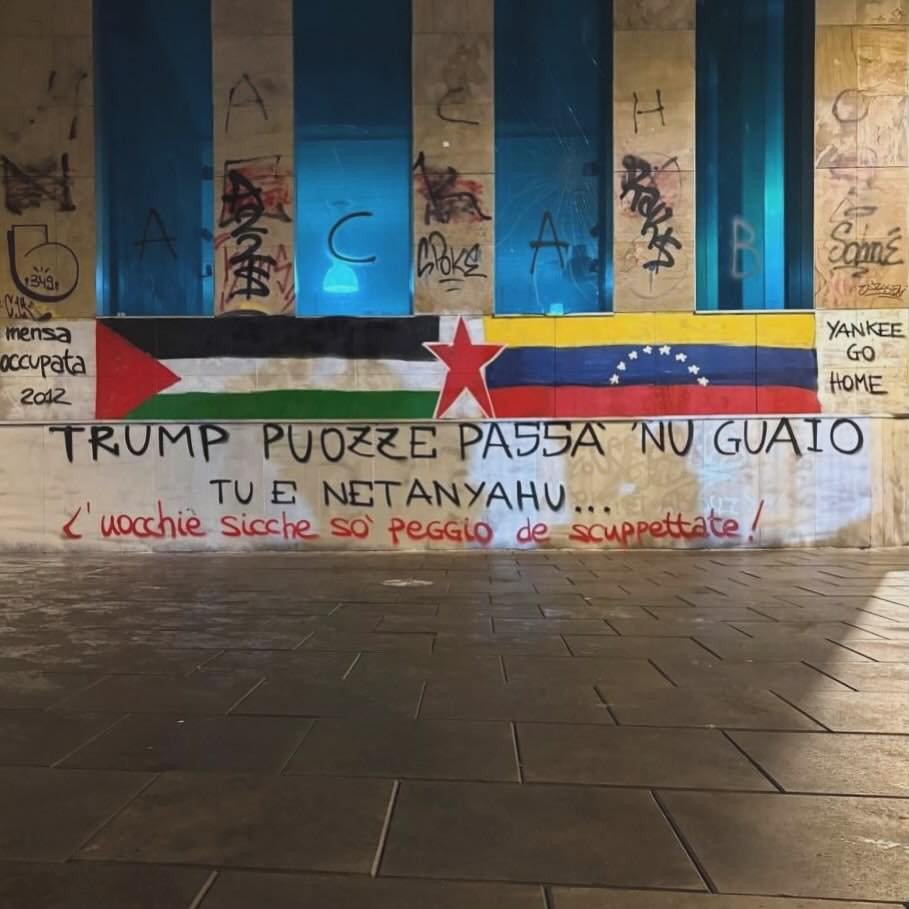 A C H O
A C A B
349
CROKE
mensa
occupata
2012
YANKEE
GO
HOME
TRUMP PUOZZE PASSA' 'NU GUAIO
TU E NETANYAHU...
L'uocchie sicche so' peggio de scuppettate!